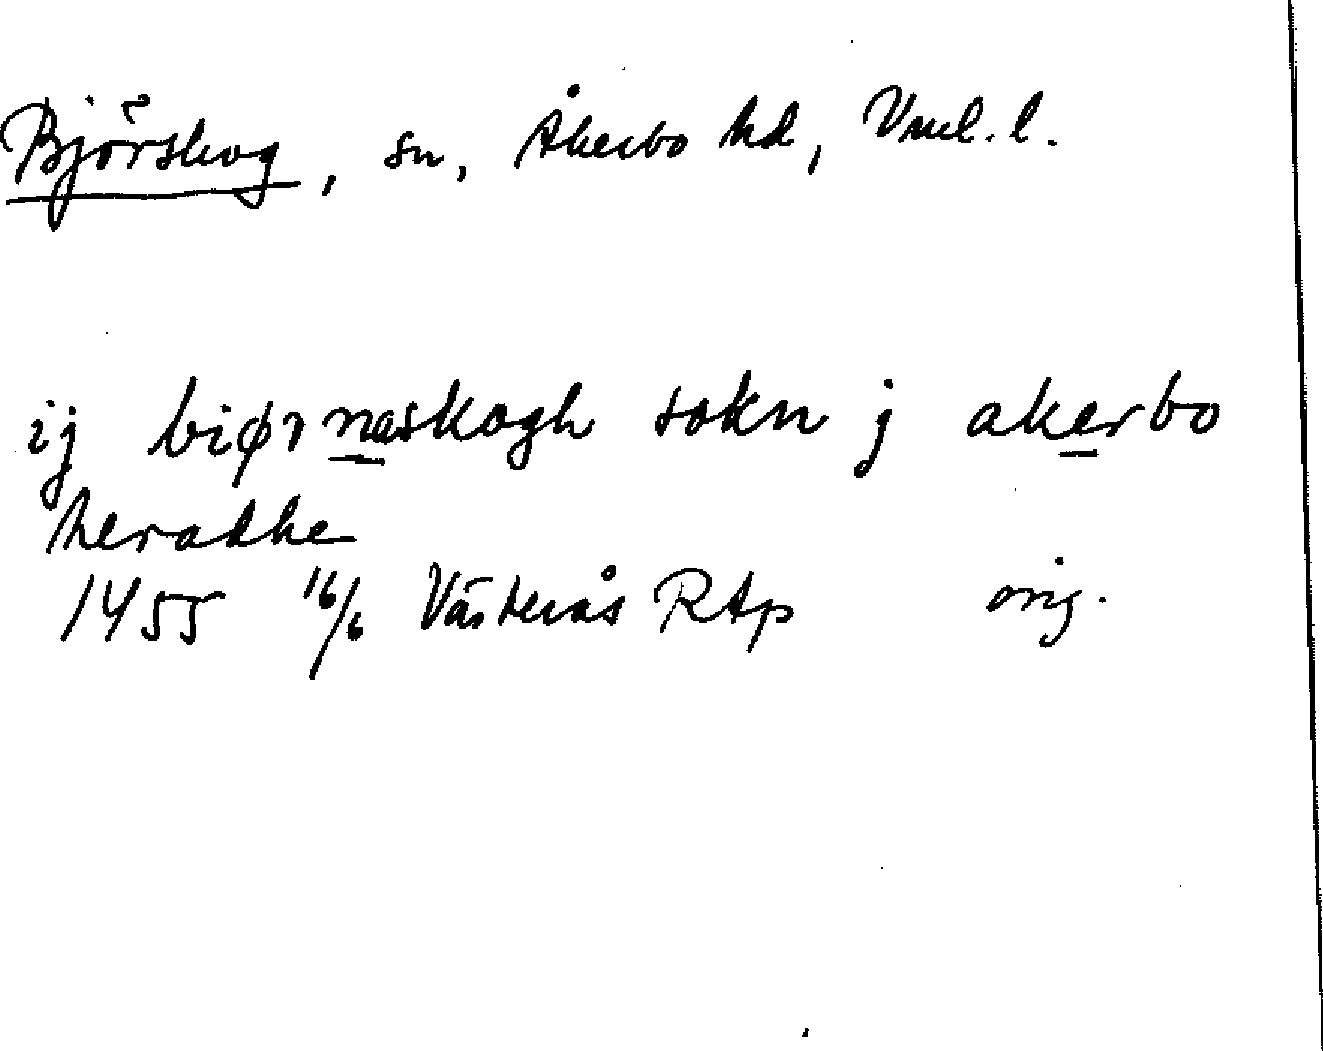 Björskog, sn, Åkerbo hd, Vml. l.
ij biørnaskogh sokn j akerbo
heradhe
1455 16/6 Västerås RAp orig.